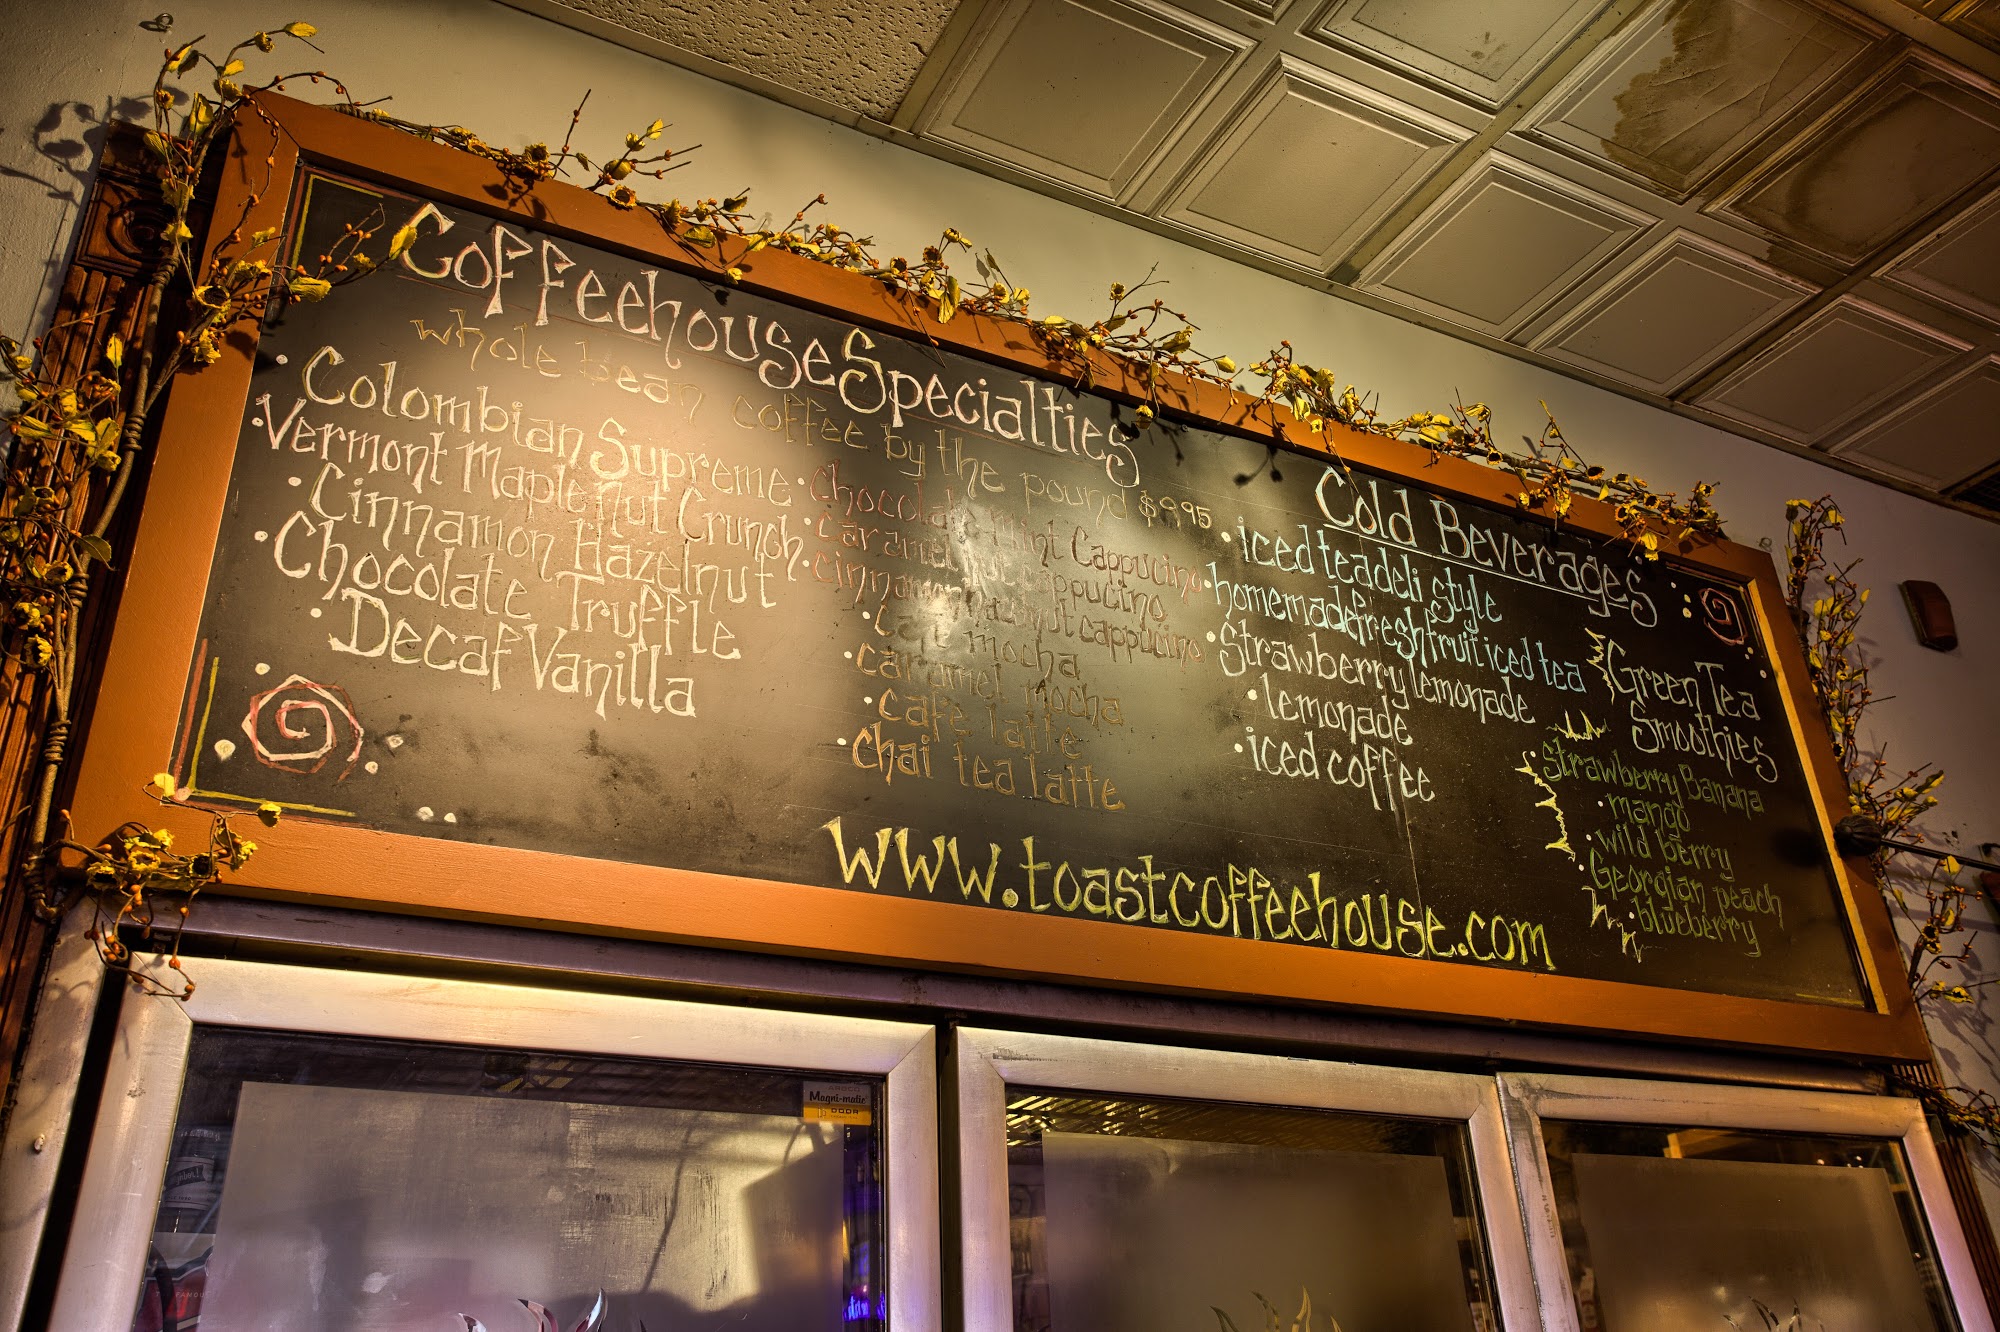 Coffeehouse Specialties
whole bean coffee by the pound $9.95
• Colombian Supreme
• Vermont Maple Nut Crunch
• Cinnamon Hazelnut
• Chocolate Truffle
• Decaf Vanilla
• Chocolate Mint Cappucino
• Caramel nut cappucino
• cinnamon hazelnut cappucino
• café mocha
• caramel mocha
• café latte
• chai tea latte
Cold Beverages
• iced tea deli style
• homemade fresh fruit iced tea
• Strawberry lemonade
• lemonade
• iced coffee
Green Tea
Smoothies
• Strawberry Banana
• mango
• wild berry
• Georgian peach
• blueberry
www.toastcoffeehouse.com
Magni-matic
DOOR